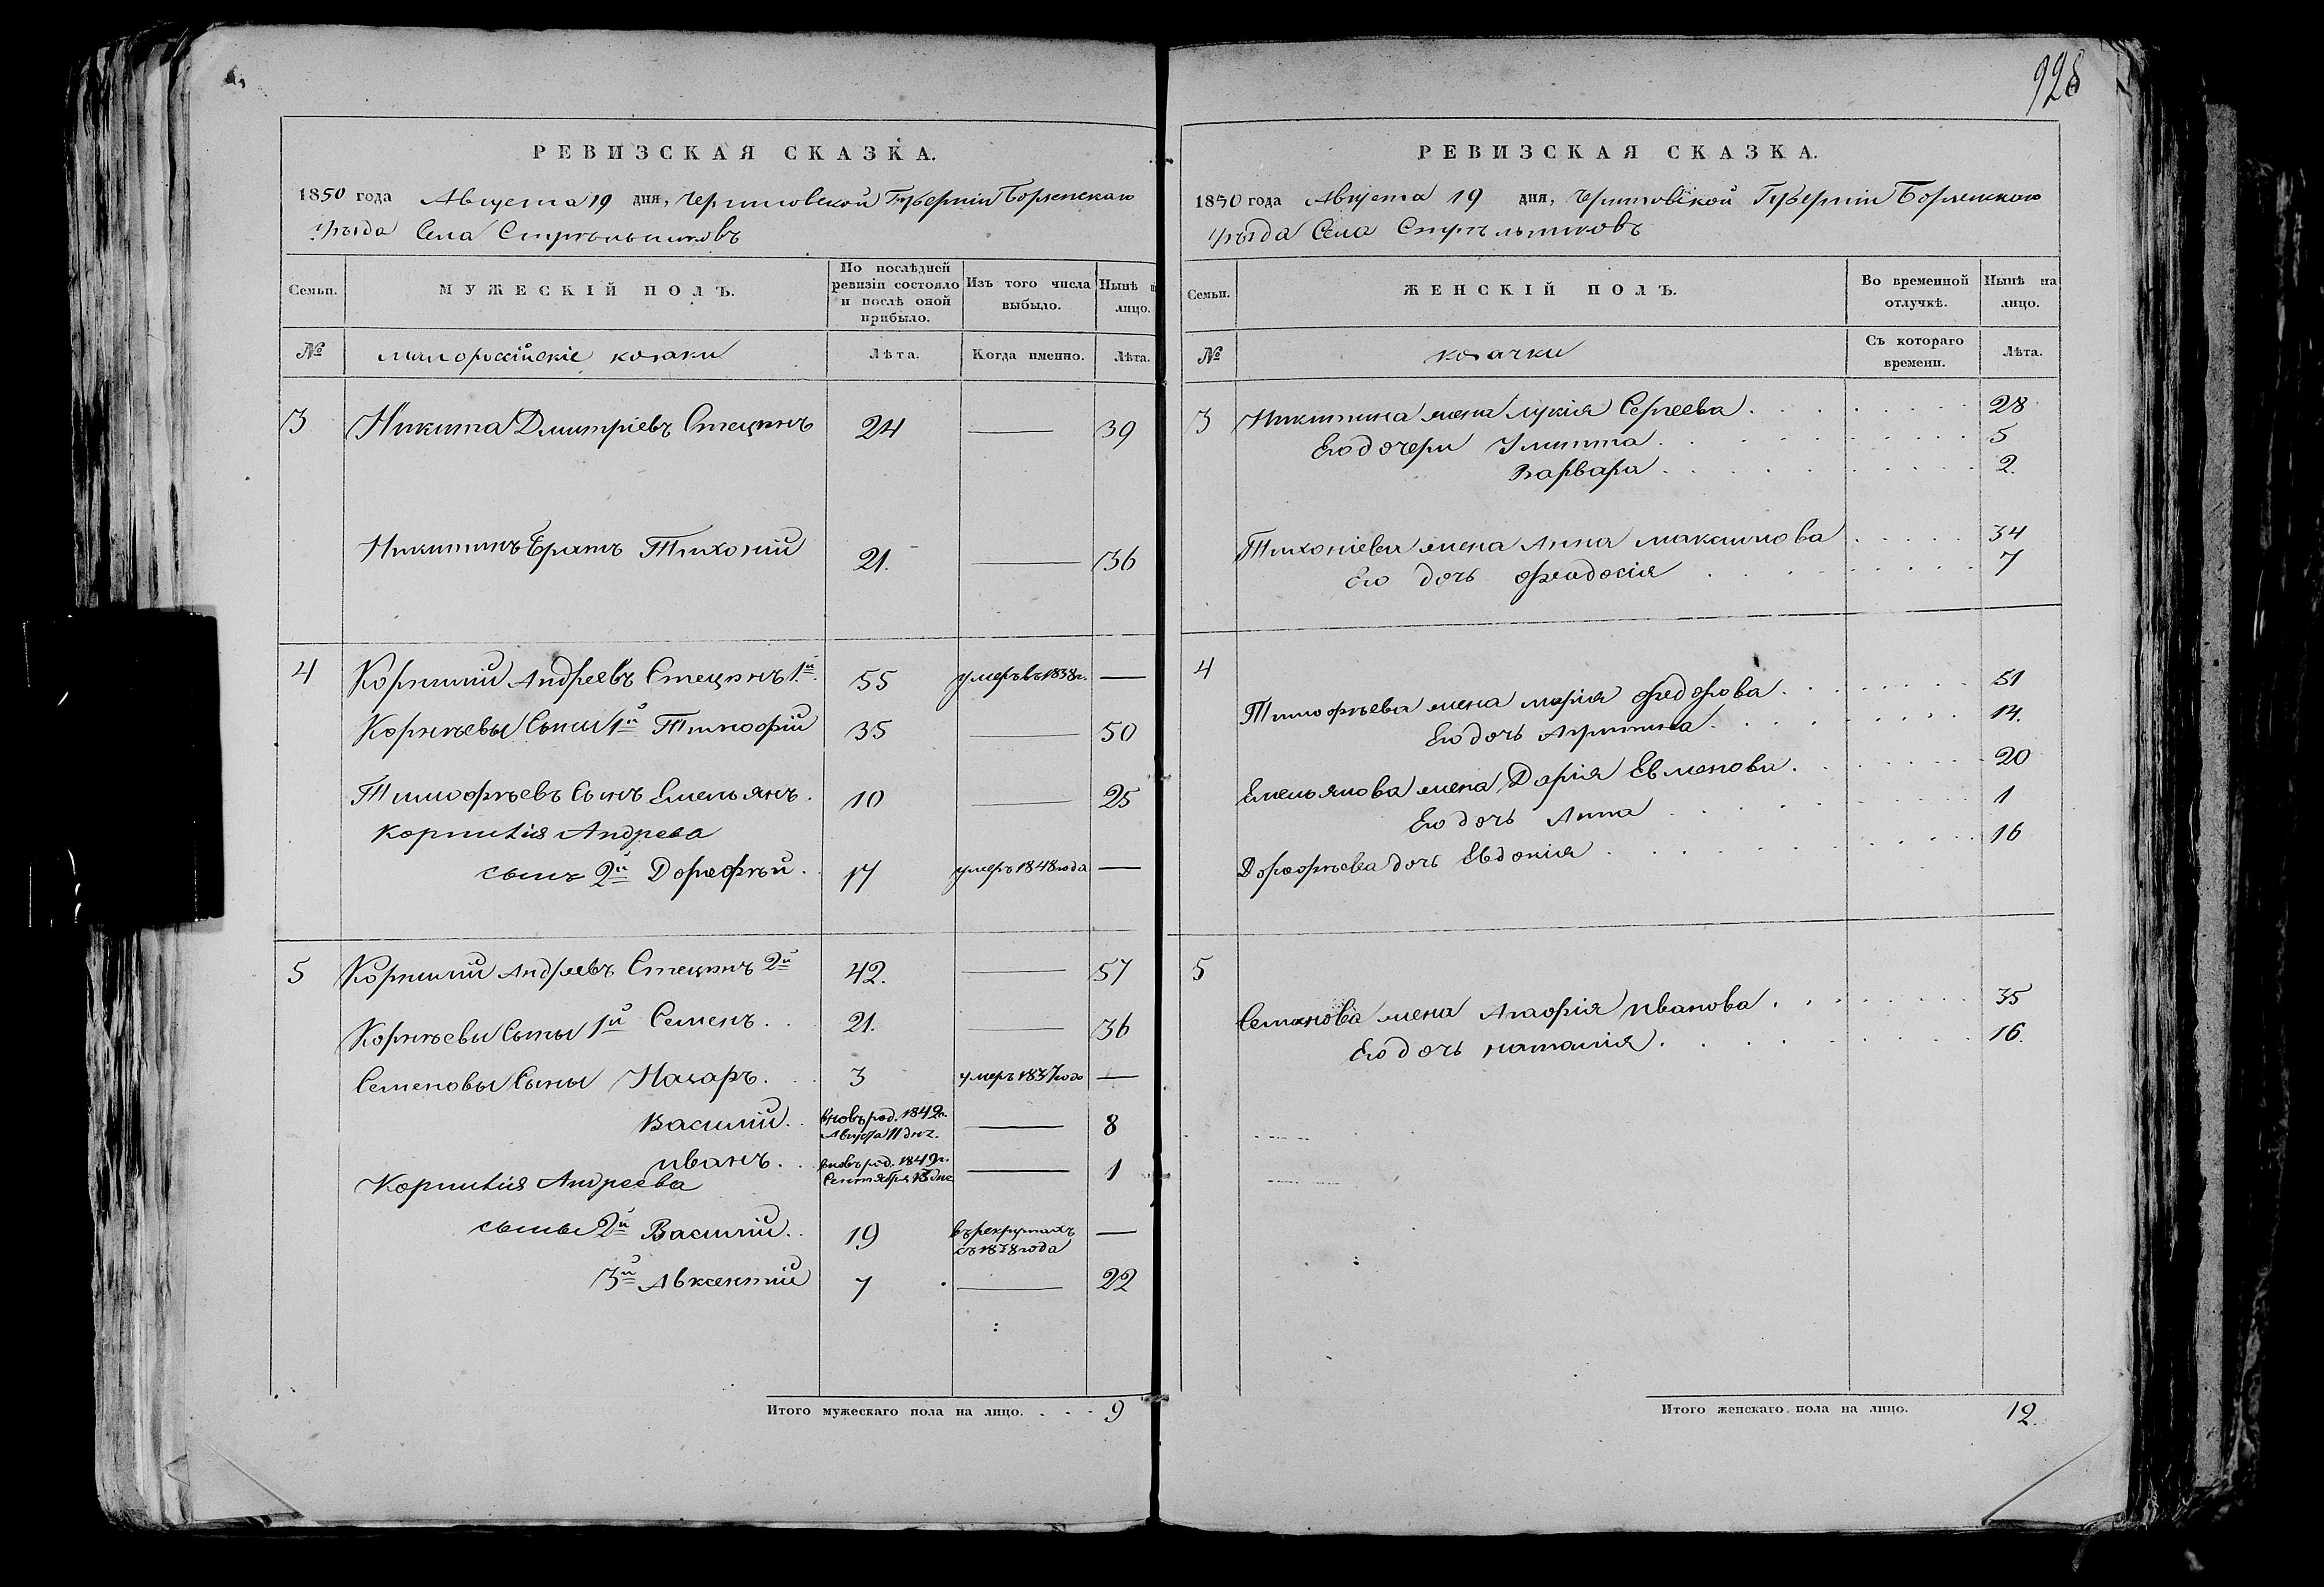 928
РЕВИЗСКАЯ СКАЗКА.
1850 года Августа 19 дня, Черниговской Губерніи Борзенскаго
Уѣзда Села Стрѣльниковъ
Семьи. МУЖЕСКІЙ ПОЛЪ. По послѣдней ревизіи состояло и послѣ оной прибыло. Изъ того числа выбыло. Нынѣ н лицо.
№ малороссійскіе козаки Лѣта. Когда именно. Лѣта.
3 Никита Дмитріевъ Стецинъ 24 — 39
Никитинъ братъ Тихоній 21. — 36
4 Корнилій Андреевъ Стецинъ 1й. 55 умеръ въ 1838г. —
Корнѣевы Сыны 1й Тимофій 35 — 50
Тимофѣевъ Сынъ Емельянъ. 10 — 25
Корнилія Андреева
сынъ 2й Дорофѣй. 17 умеръ 1848 года —
5 Корнилій Андреевъ Стецинъ 2й 42. — 57
Корнѣевы Сыны 1й Семенъ. 21. — 36
Семеновы Сыны Назаръ. 3 умеръ 1837 года —
Василій. вновь род. 1842г. Августа 11 дня. — 8
иванъ. вновь род. 1849г. Сентября 13 дня — 1
Корнилія Андреева
сыны 2й Василій. 19 въ рекрутахъ съ 1838 года —
3й Авксентій 7 — 22
Итого мужескаго пола на лицо. 9
РЕВИЗСКАЯ СКАЗКА.
1850 года Августа 19 дня, Черниговской Губерніи Борзенскаго
Уѣзда Села Стрѣльниковъ
Семьи. ЖЕНСКІЙ ПОЛЪ. Во временной отлучкѣ. Нынѣ на лицо.
№ козачки Съ котораго времени. Лѣта.
3 Никитина жена лукія Сергеева. 28
Его дочери Улитта. 5
Варвара. 2.
Тихоніева жена Анна максимова 34
Его дочь феодосія 7
4
Тимофѣева жена марія федорова. 51
Его дочь 14.
Емельянова жена Дарія Евменова. 20
Его дочь Анна 1
Дорофѣева дочь Евдокія 16
5
Семенова жена Агафія иванова. 35
Его дочь наталія. 16.
Итого женскаго пола на лицо. 12.